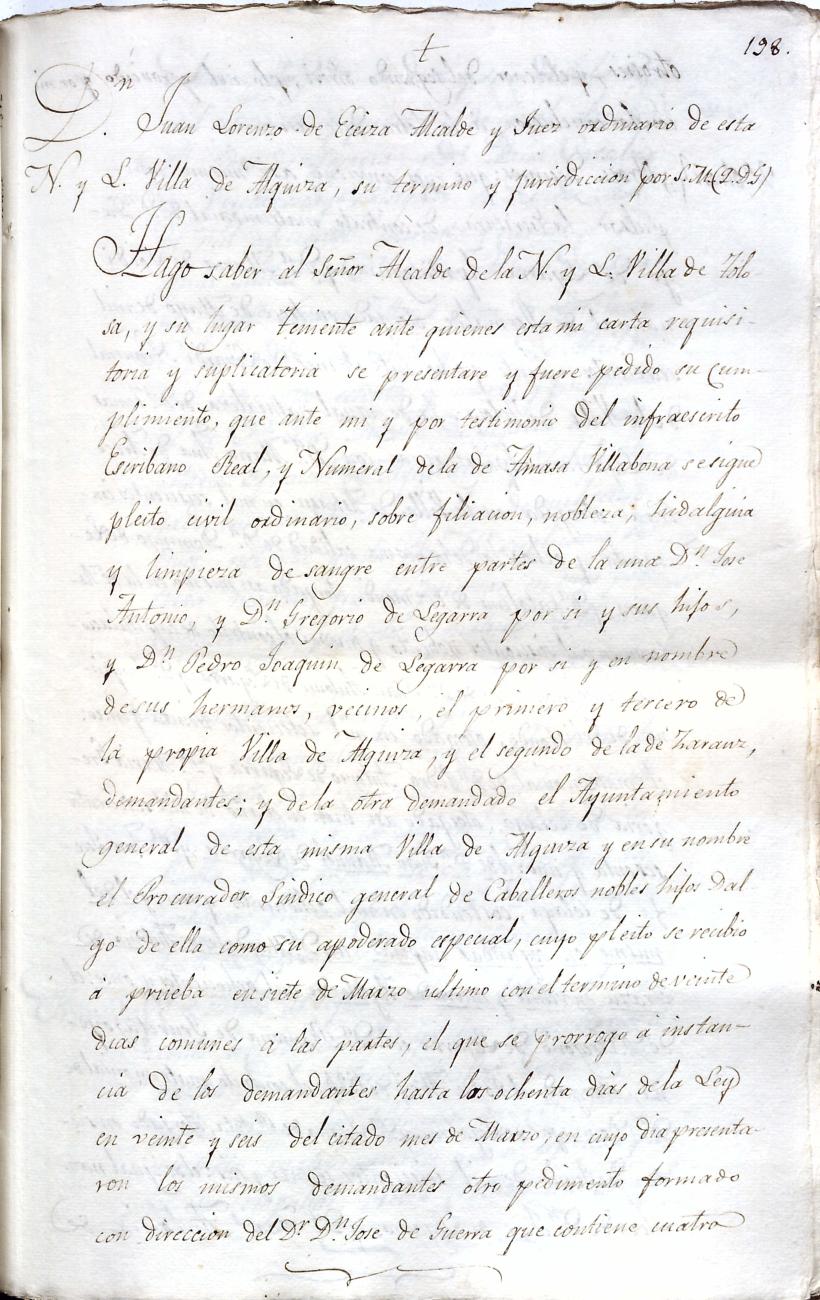 198.
†
Dn. Juan Lorenzo de Eceiza Alcalde y Juez ordinario de esta
N. y L. Villa de Alquiza, su termino y Jurisdiccion por S. M. (Q. D. G)
Hago saber al Señor Alcalde de la N. y L. Villa de Tolo-
sa, y su lugar Teniente ante quienes esta mi carta requisi-
toria y suplicatoria se presentare y fuere pedido su cum-
plimiento, que ante mi y por testimonio del infraescrito
Escribano Real, y Numeral de la de Amasa Villabona se sigue
pleito civil ordinario, sobre filiacion, nobleza, hidalguia
y limpieza de sangre entre partes de la una Dn. Jose
Antonio, y Dn. Gregorio de Legarra por si y sus hijos,
y Dn. Pedro Joaquin de Legarra por si y en nombre
de sus hermanos, vecinos, el primero y tercero de
la propia Villa de Alquiza, y el segundo de la de Zarauz,
demandantes; y de la otra demandado el Ayuntamiento
general de esta misma Villa de Alquiza y en su nombre
el Procurador Sindico general de Caballeros nobles hijos Dal-
go de ella como su apoderado especial, cuyo pleito se recibio
á prueba en siete de Marzo ultimo con el termino de veinte
dias comunes á las partes, el que se prorrogo á instan-
cia de los demandantes hasta los ochenta dias de la Ley
en veinte y seis del citado mes de Marzo, en cuyo dia presenta-
ron los mismos demandantes otro pedimento formado
con direccion del Dr. Dn. Jose de Guerra que contiene cuatro